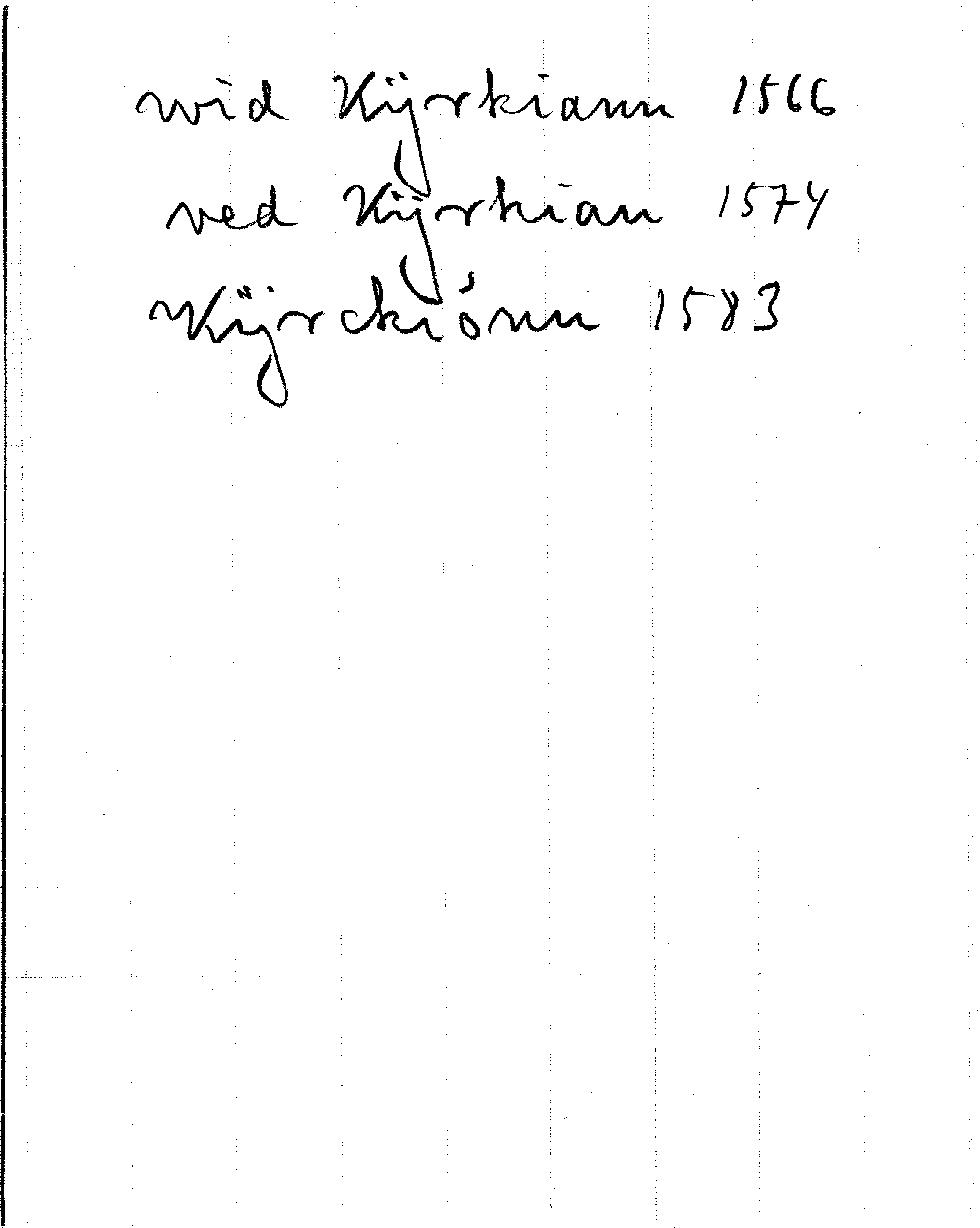 wid Kÿrkiann 1566
ved Kÿrkian 1574
Kÿrckiónn 1583